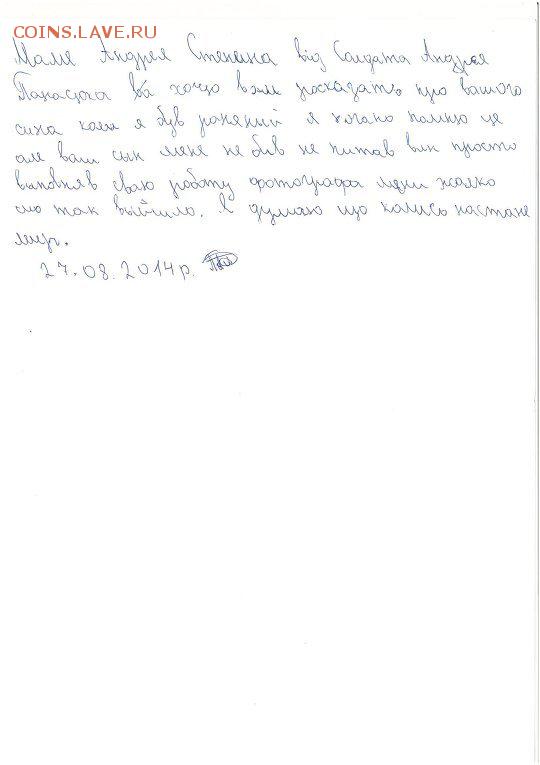 COINS.LAVE.RU
Маме Андрея Стенина від Солдата Андрея
Панасюка хочю вам росказать про вашого
сина коли я був раненый я плохо помню це
але ваш сын мене не бив не питав вин просто
выповняв сваю роботу фотографа мени жалко
що так выйшло. Я думаю що колись настане
мир.
27.08.2014 р.